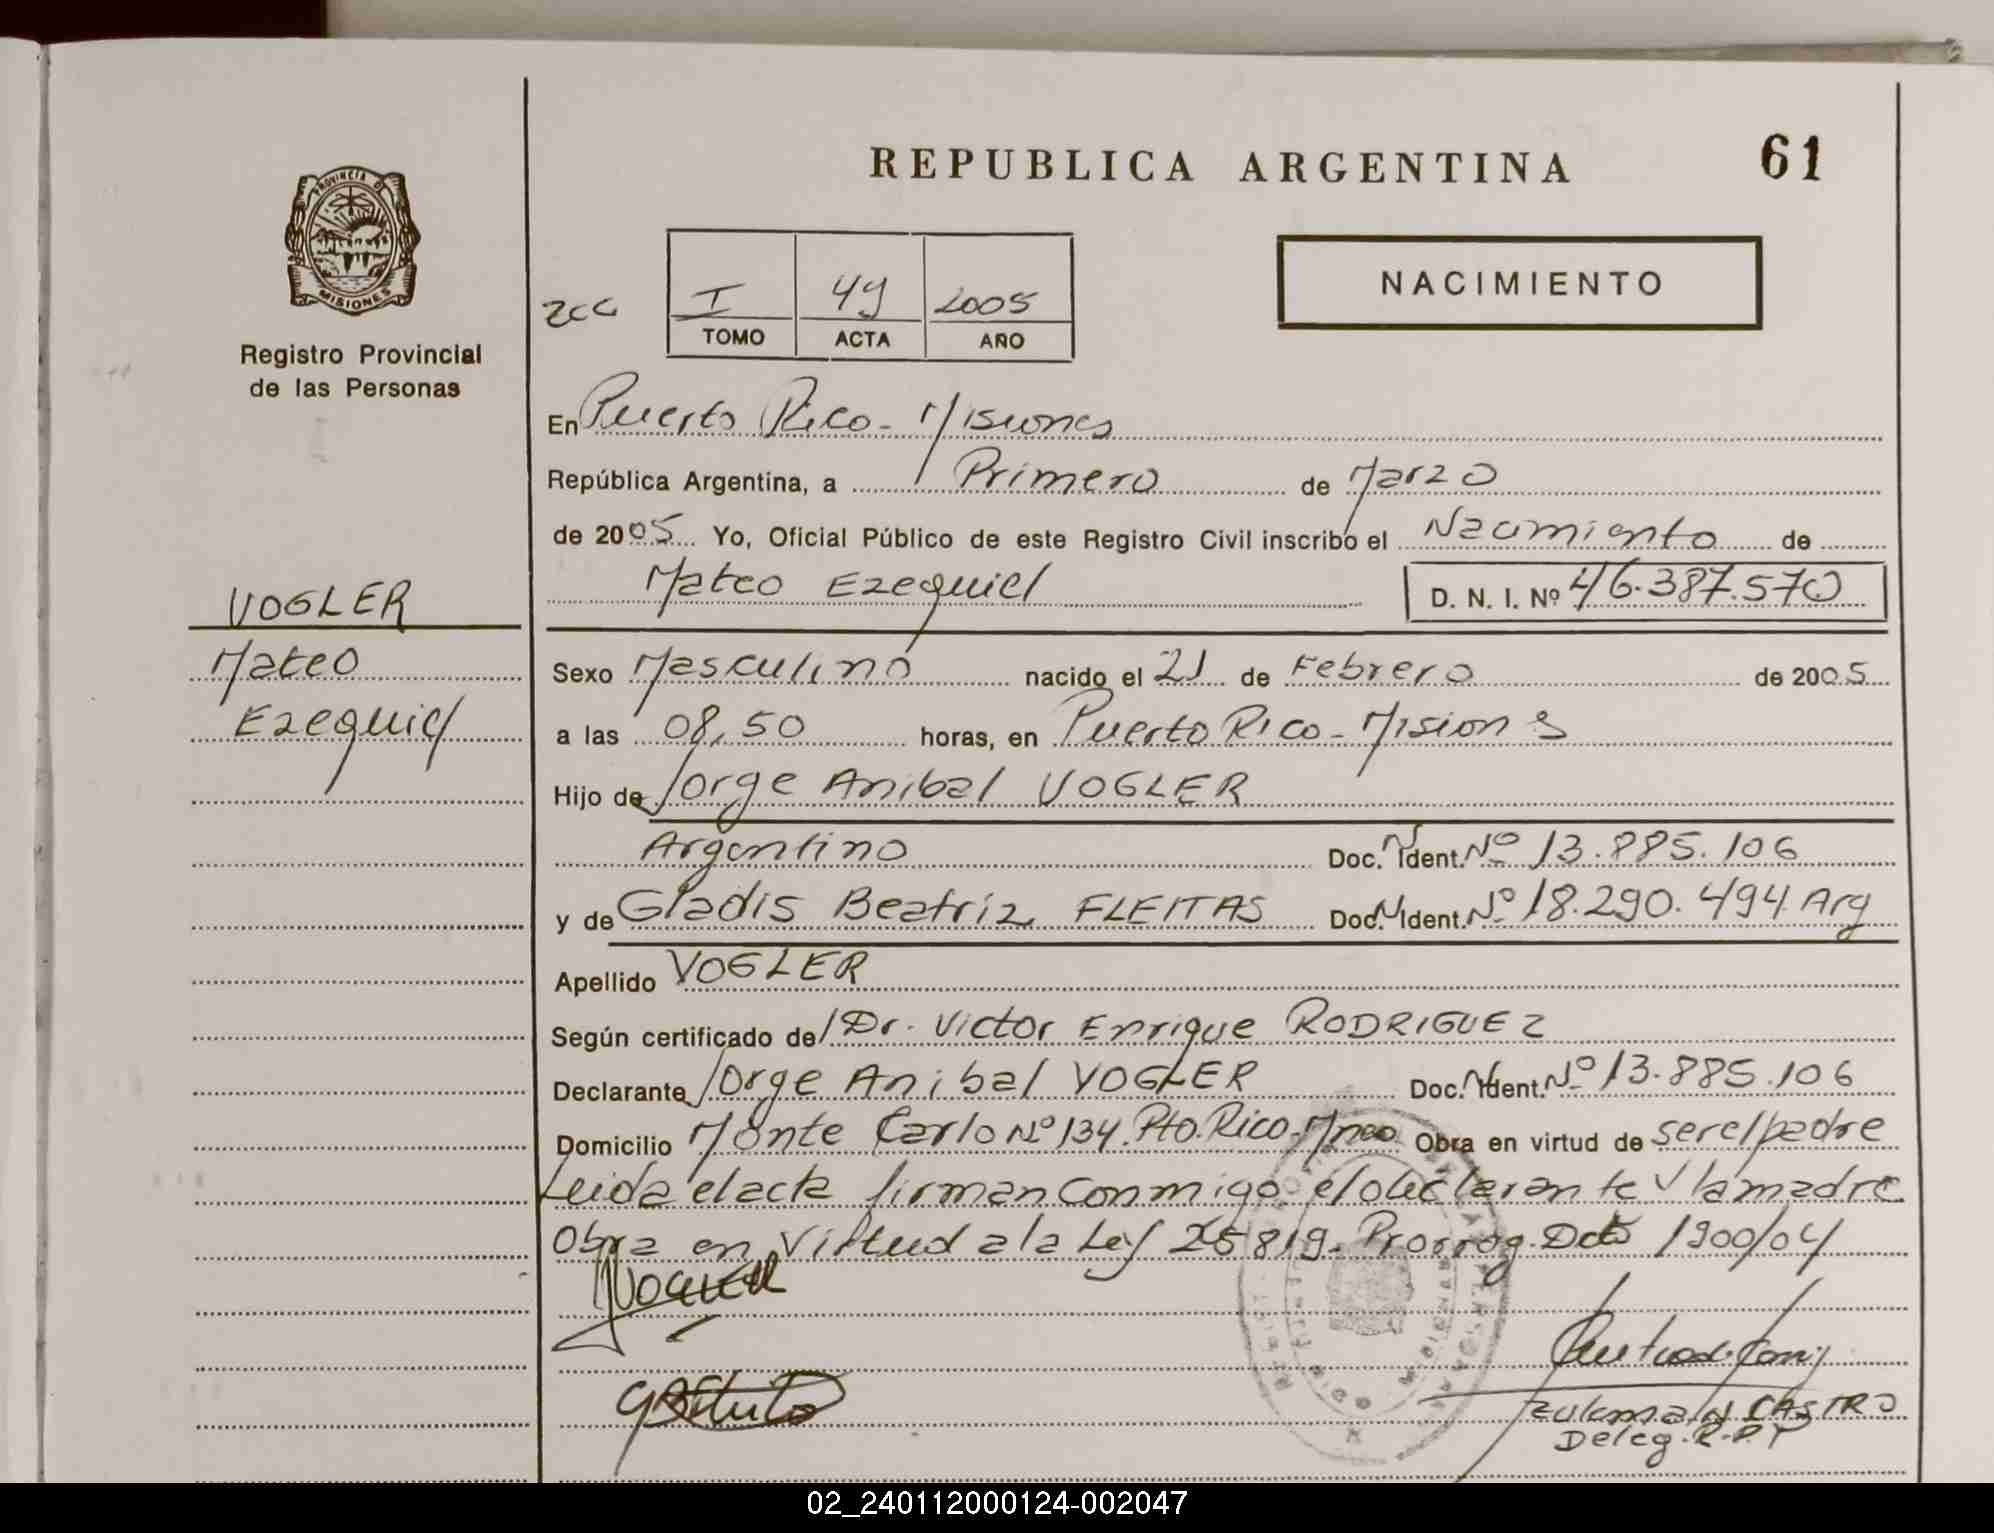 REPUBLICA ARGENTINA 61
PROVINCIA DE
MISIONES
Registro Provincial
de las Personas
I 49 2005
TOMO ACTA AÑO
NACIMIENTO
En Puerto Rico - Misiones
República Argentina, a Primero de Marzo
de 2005 Yo, Oficial Público de este Registro Civil inscribo el Nacimiento de
Mateo Ezequiel D. N. I. Nº 46.387.570
VOGLER
Mateo
Ezequiel
Sexo Masculino nacido el 21 de Febrero de 2005
a las 08,50 horas, en Puerto Rico - Misiones
Hijo de Jorge Anibal VOGLER
Argentino Doc. N Ident. Nº 13.885.106
y de Gladis Beatriz FLEITAS Doc. N Ident. Nº 18.290.494 Arg
Apellido VOGLER
Según certificado de Dr. Victor Enrique RODRIGUEZ
Declarante Jorge Anibal VOGLER Doc. N Ident. Nº 13.885.106
Domicilio Monte Carlo Nº 134. Pto. Rico - Obra en virtud de ser el padre
Leida el acta firman conmigo el declarante y la madre
Obra en Virtud a la Ley 25819. Prorrog. Dcto 1900/04
VOGLER
Zulema N CASTRO
Deleg. R.P.P
02_240112000124-002047